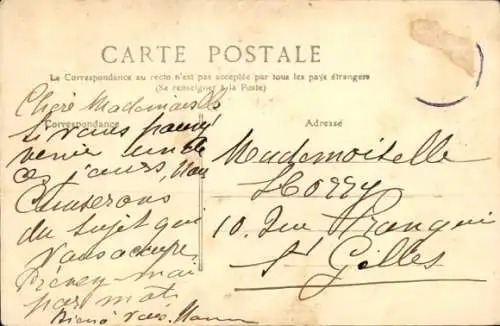 CARTE POSTALE
Le Correspondance au recto n'est pas acceptée par tous les pays étrangers
(Se renseigner à la Poste)
Correspondance
Adresse
Chère Mademoiselle
Si vous pouvez
venir un de
ces jours, nous
Causerons
du sujet qui
vous occupe
Prévenez moi
par mot
Bien à vous
Mademoiselle
10, Rue
St Gilles